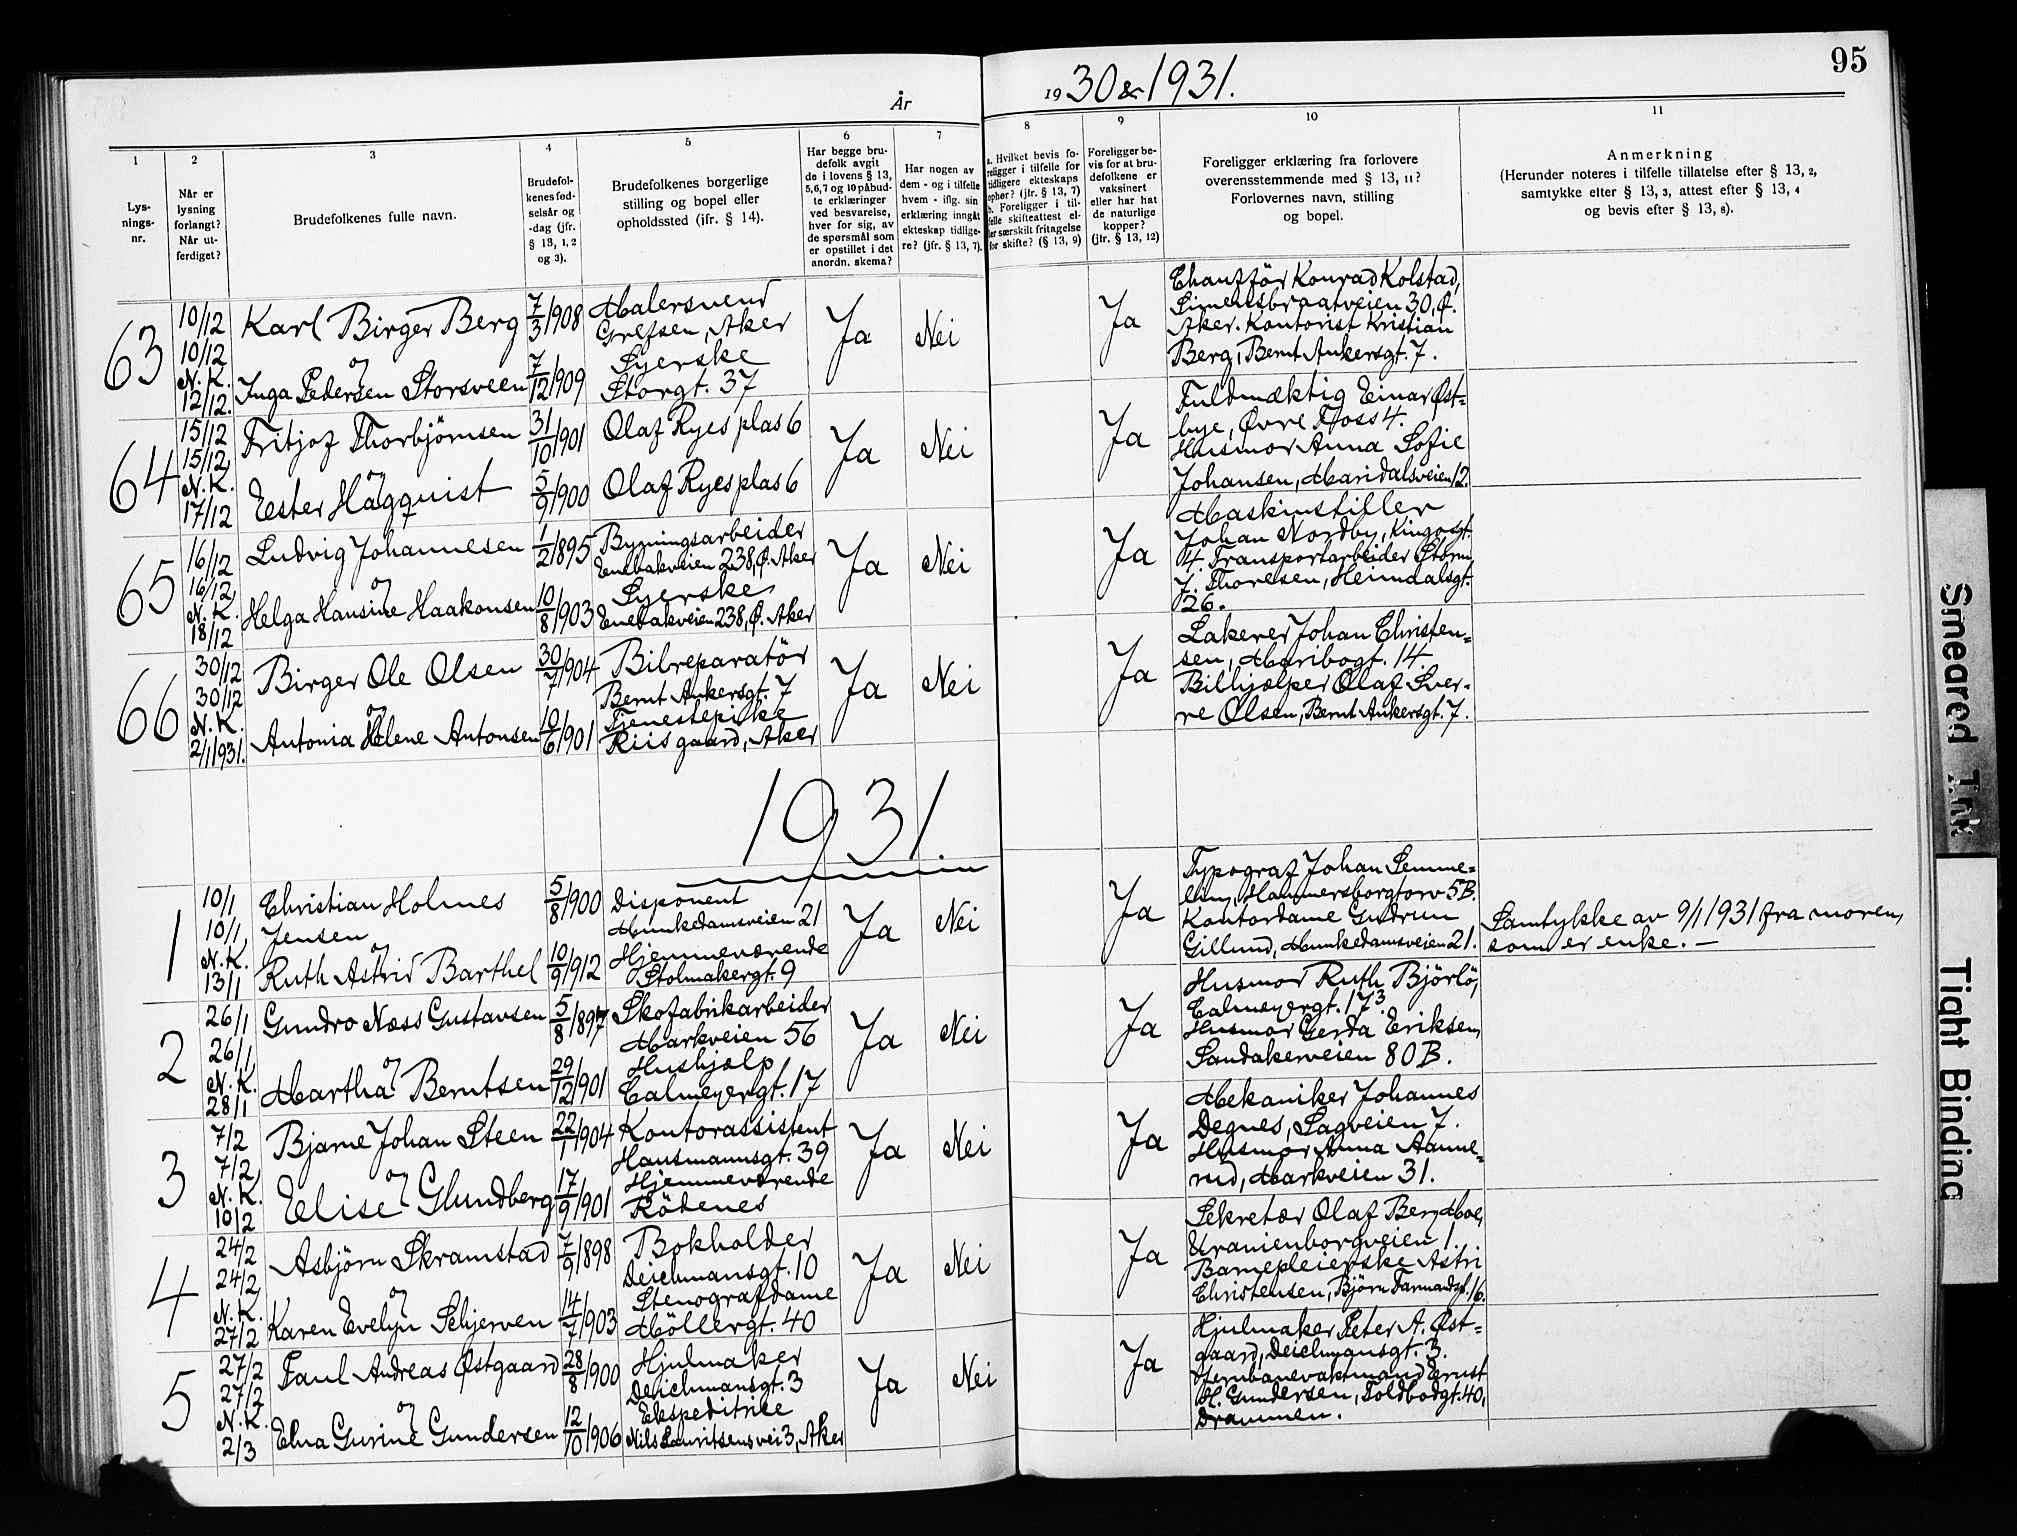 95
År 1930 & 1931.
1
2
3
4
5
6
7
8
9
10
11
Lys-
nings-
nr.
Når er
lysning
forlangt?
Når ut-
ferdiget?
Brudefolkenes fulle navn.
Brudefol-
kenes fød-
selsår og
-dag (jfr.
§ 13, 1, 2
og 3).
Brudefolkenes borgerlige
stilling og bopel eller
opholdssted (jfr. § 14).
Har begge bru-
defolk avgit
de i lovens § 13,
5,6,7 og 10 påbud-
te erklæringer
ved besvarelse,
hver for sig, av
de spørsmål som
er opstillet i det
anordn. skema?
Har nogen av
dem - og i tilfelle
hvem - iflg. sin
erklæring inngåt
ekteskap tidlige-
re? (jfr. § 13, 7).
a. Hvilket bevis fo-
religger i tilfelle for
tidligere ekteskaps
ophør? (jfr. § 13, 7)
b. Foreligger i til-
felle skifteattest el-
ler særskilt fritagelse
for skifte? (§ 13, 9)
Foreligger be-
vis for at bru-
defolkene er
vaksinert
eller har hat
de naturlige
kopper?
(jfr. § 13, 12)
Foreligger erklæring fra forlovere
overensstemmende med § 13, 11?
Forlovernes navn, stilling
og bopel.
Anmerkning
(Herunder noteres i tilfelle tillatelse efter § 13, 2,
samtykke efter § 13, 3, attest efter § 13, 4
og bevis efter § 13, 8).
63
10/12
10/12
N. K.
12/12.
Karl Birger Berg
og
Inga Pedersen Storsveen
7/3 1908
7/12 1909
Malersvend
Grefsen, Aker
Syerske
Storgt. 37
Ja
Nei
Ja
Chaufför Konrad Kolstad,
Simensbraatveien 30, Ø.
Aker. Kontorist Kristian
Berg, Bernt Ankersgt. 7.
64
15/12
15/12
N. K.
17/12
Fritjof Thorbjörnsen
og
Ester Hägqvist
31/10 1901
5/9 1900
Olaf Ryes plas 6
Olaf Ryes plas 6
Ja
Nei
Ja
Fuldmæktig Einar Øst=
bye, Øvre Foss 4.
Husmor Anna Sofie
Johansen, Maridalsveien 12.
65
16/12
16/12
N. K.
18/12
Ludvig Johannesen
og
Helga Hansine Haakonsen
1/2 1895
10/8 1903
Bygningsarbeider
Enebakveien 238, Ø. Aker
Syerske
Enebakveien 238, Ø. Aker
Ja
Nei
Ja
Maskinstiller
Johan Nordby, Kingosgt.
14. Transportarbeider Storm
J. Thoresen, Heimdalsgt.
26.
66
30/12
30/12
N. K.
2/1 1931.
Birger Ole Olsen
og
Antonia Helene Antonsen
30/7 1904
10/6 1901
Bilreparatör
Bernt Ankersgt. 7
Tjenestepike
Riis gaard, Aker
Ja
Nei
Ja
Lakerer Johan Christen=
sen, Maribogt. 14.
Bilhjælper Olaf Sver-
re Olsen, Bernt Ankersgt. 7.
1931.
1
10/1
10/1
N. K.
13/1
Christian Holmes
Jensen
og
Ruth Astrid Barthel
5/8 1900
10/9 1912
Disponent
Munkedamsveien 21
Hjemmeværende
Stolmakergt. 9
Ja
Nei
Ja
Typograf Johan Semme=
lin, Hammersborgtorv 5B.
Kontordame Gudrun
Gillund, Munkedamsveien 21.
Samtykke av 9/1 1931 fra moren,
som er enke. —
2
26/1
26/1
N. K.
28/1
Gundro Næss Gustavsen
og
Martha Berntsen
5/8 1897
29/12 1901
Skofabrikarbeider
Markveien 56
Hushjælp
Calmeyergt. 17
Ja
Nei
Ja
Husmor Ruth Björlö,
Calmeyergt. 17³.
Husmor Gerda Eriksen,
Sandakerveien 80 B.
3
7/2
7/2
N. K.
10/2
Bjarne Johan Steen
og
Elise Glundberg
22/1 1904
17/9 1901
Kontorassistent
Hausmannsgt. 39
Hjemmeværende
Rödenes
Ja
Nei
Ja
Mekaniker Johannes
Degnes, Sagveien 7.
Husmor Anna Aamne=
rud, Markveien 31.
4
24/2
24/2
N. K.
27/2
Asbjörn Skramstad
og
Karen Evelyn Schjerven
7/9 1898
14/7 1903
Bokholder
Deichmansgt. 10
Stenografdame
Möllergt. 40
Ja
Nei
Ja
Sekretær Olaf Berg Moe,
Uranienborgveien 1.
Barnepleierske Astri
Christensen, Björn Farmandsgt. 16.
5
27/2
27/2
N. K.
2/3
Paul Andreas Østgaard
og
Elna Gurine Gundersen
28/8 1900
12/10 1906
Hjulmaker
Deichmansgt. 3
Ekspeditrice
Nils Lauritsens vei 3, Aker
Ja
Nei
Ja
Hjulmaker Peter A. Øst=
gaard, Deichmansgt. 3.
Jernbanevaktmand Ernst
H. Gundersen, Toldbodgt. 40,
Drammen.
Smeared Ink
Tight Binding